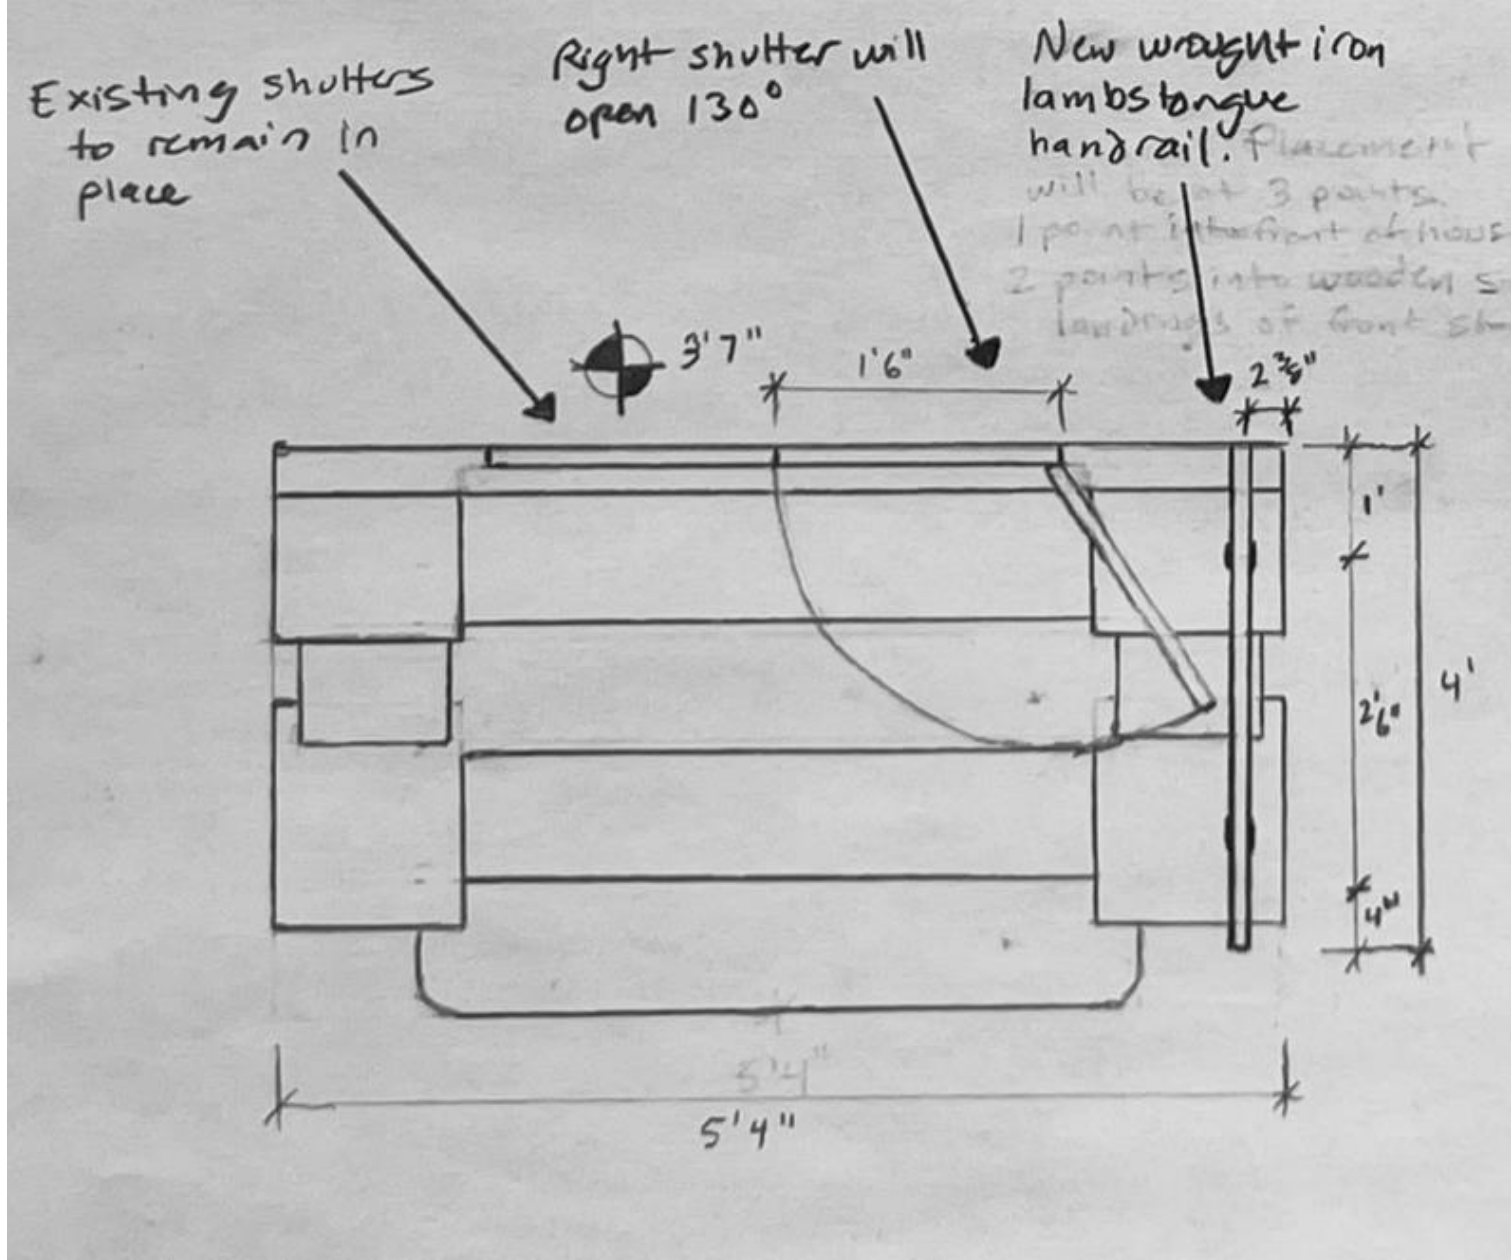 Existing shutters
to remain in
place
Right shutter will
open 130°
New wrought iron
lambstongue
handrail. Placement
will be at 3 points.
1 point into front of hous
2 points into wooden s
landings of front st
3'7"
1'6"
2 3/8"
1'
2'6"
4'
4"
5'4"
5'4"